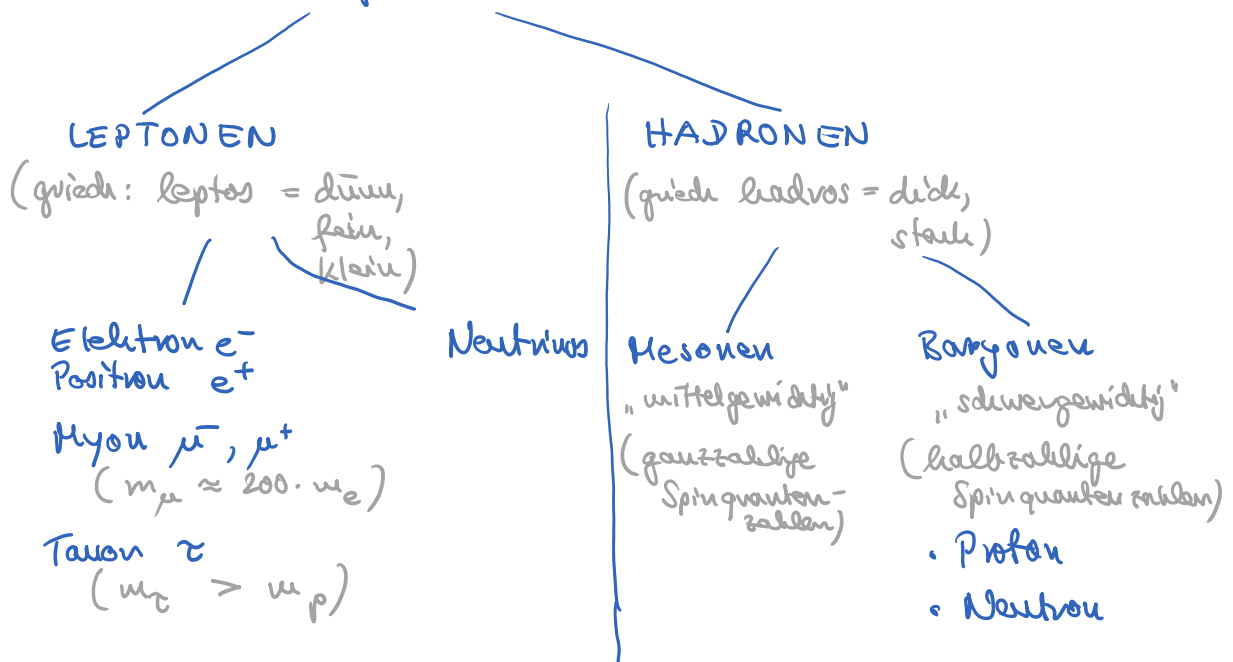 LEPTONEN
(griech: leptos = dünn,
fein,
klein)
Elektron e⁻
Positron e⁺
Myon μ⁻, μ⁺
(m_μ ≈ 200 · m_e)
Tauon τ
(m_τ > m_p)
Neutrinos
HADRONEN
(griech hadros = dick,
stark)
Mesonen
„mittelgewichtig"
(ganzzahlige
Spinquanten-
zahlen)
Baryonen
„schwergewichtig"
(halbzahlige
Spinquantenzahlen)
• Proton
• Neutron